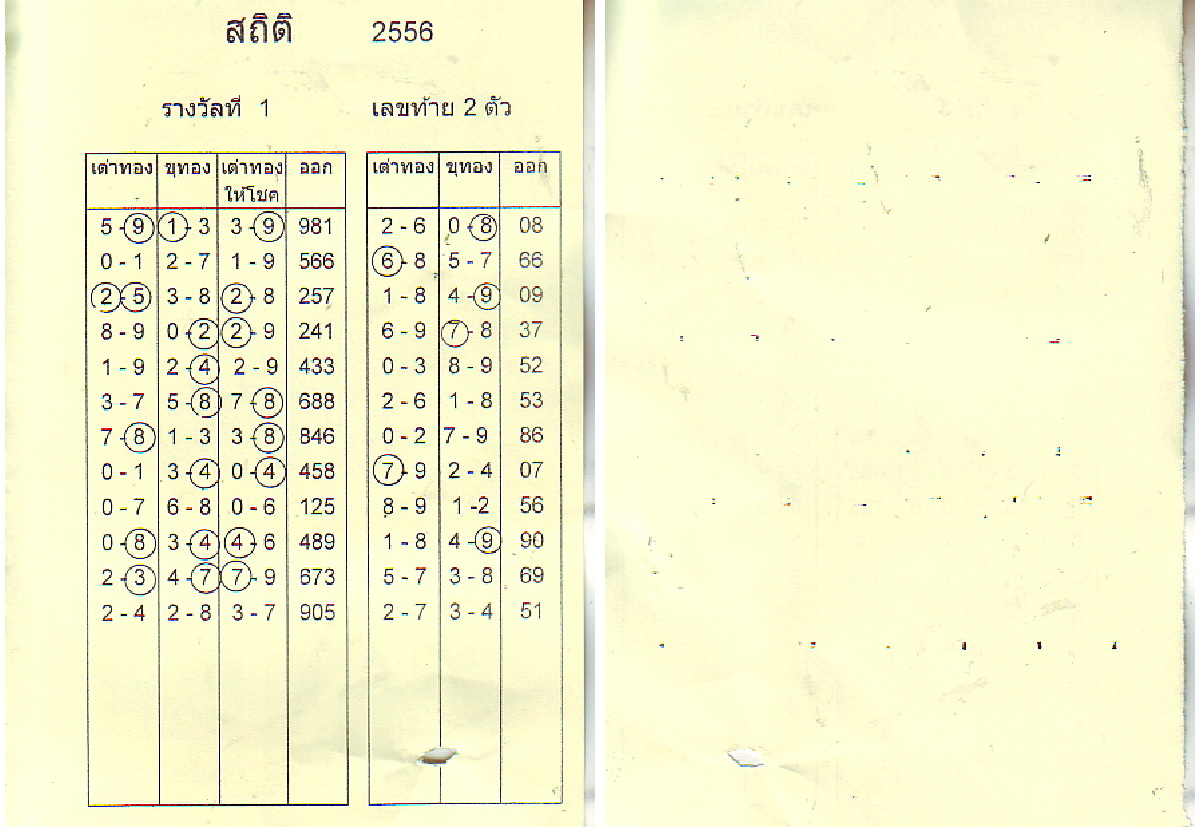 สถิติ 2556
รางวัลที่ 1 เลขท้าย 2 ตัว
เต่าทอง ขุทอง เต่าทอง ออก เต่าทอง ขุทอง ออก
ให้โชค
5-9 1-3 3-9 981 2-6 0-8 08
0-1 2-7 1-9 566 6-8 5-7 66
2-5 3-8 2-8 257 1-8 4-9 09
8-9 0-2 2-9 241 6-9 7-8 37
1-9 2-4 2-9 433 0-3 8-9 52
3-7 5-8 7-8 688 2-6 1-8 53
7-8 1-3 3-8 846 0-2 7-9 86
0-1 3-4 0-4 458 7-9 2-4 07
0-7 6-8 0-6 125 8-9 1-2 56
0-8 3-4 4-6 489 1-8 4-9 90
2-3 4-7 7-9 673 5-7 3-8 69
2-4 2-8 3-7 905 2-7 3-4 51